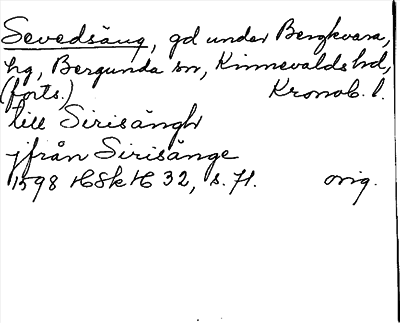 Sevedsäng, gd under Bergkvara,
hg, Bergunda sn, Kinnevalds hd,
(forts.) Kronob. l.
till Sirisängh
ifrån Sirisänge
1598 HSkH 32, s. 71. orig.